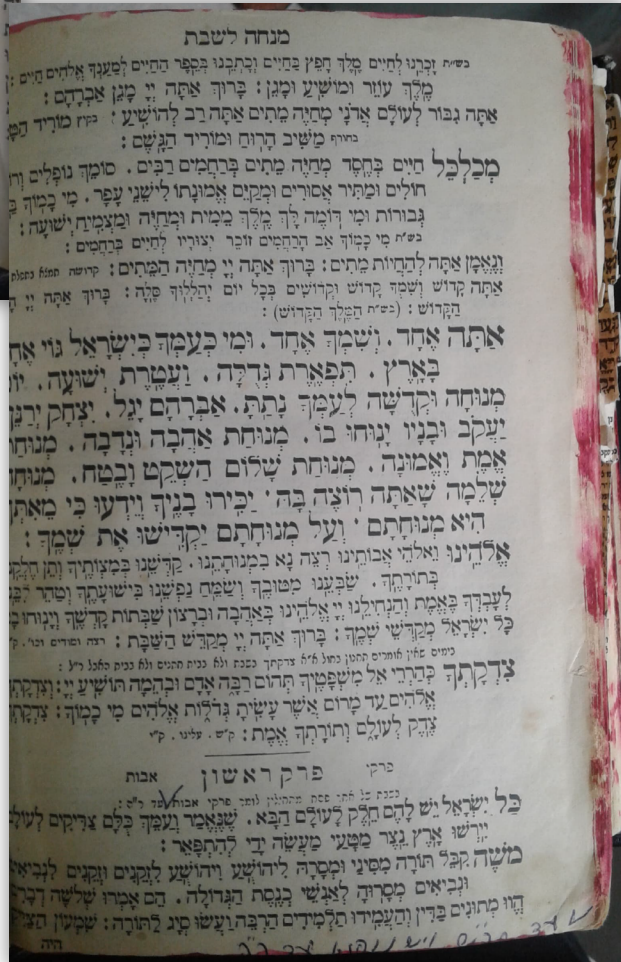 מנחה לשבת
בש״ת זָכְרֵנוּ לְחַיִּים מֶלֶךְ חָפֵץ בַּחַיִּים וְכָתְבֵנוּ בְּסֵפֶר הַחַיִּים לְמַעַנְךָ אֱלֹהִים חַיִּים :
מֶלֶךְ עוֹזֵר וּמוֹשִׁיעַ וּמָגֵן : בָּרוּךְ אַתָּה יְיָ מָגֵן אַבְרָהָם :
אַתָּה גִּבּוֹר לְעוֹלָם אֲדֹנָי מְחַיֵּה מֵתִים אַתָּה רַב לְהוֹשִׁיעַ : בקיץ מוֹרִיד
בחורף מַשִּׁיב הָרוּחַ וּמוֹרִיד הַגֶּשֶׁם :
מְכַלְכֵּל חַיִּים בְּחֶסֶד מְחַיֵּה מֵתִים בְּרַחֲמִים רַבִּים . סוֹמֵךְ נוֹפְלִים
חוֹלִים וּמַתִּיר אֲסוּרִים וּמְקַיֵּם אֱמוּנָתוֹ לִישֵׁנֵי עָפָר . מִי כָמוֹךָ
גְּבוּרוֹת וּמִי דּוֹמֶה לָּךְ מֶלֶךְ מֵמִית וּמְחַיֶּה וּמַצְמִיחַ יְשׁוּעָה :
בש״ת מִי כָמוֹךָ אַב הָרַחֲמִים זוֹכֵר יְצוּרָיו לְחַיִּים בְּרַחֲמִים :
וְנֶאֱמָן אַתָּה לְהַחֲיוֹת מֵתִים : בָּרוּךְ אַתָּה יְיָ מְחַיֵּה הַמֵּתִים : קדושה תמצא
אַתָּה קָדוֹשׁ וְשִׁמְךָ קָדוֹשׁ וּקְדוֹשִׁים בְּכָל יוֹם יְהַלְלוּךָ סֶּלָה : בָּרוּךְ אַתָּה יְיָ
הָקָּדוֹשׁ : (בש״ת הַמֶּלֶךְ הַקָּדוֹשׁ) :
אַתָּה אֶחָד . וְשִׁמְךָ אֶחָד . וּמִי כְּעַמְּךָ כְּיִשְׂרָאֵל גּוֹי
בָּאָרֶץ . תִּפְאֶרֶת גְּדֻלָּה . וַעֲטֶרֶת יְשׁוּעָה .
מְנוּחָה וּקְדֻשָּׁה לְעַמְּךָ נָתַתָּ . אַבְרָהָם יָגֵל . יִצְחָק
יַעֲקֹב וּבָנָיו יָנוּחוּ בוֹ . מְנוּחַת אַהֲבָה וּנְדָבָה .
אֱמֶת וֶאֱמוּנָה . מְנוּחַת שָׁלוֹם הַשְׁקֵט וָבֶטַח .
שְׁלֵמָה שָׁאַתָּה רוֹצֶה בָּהּ . יַכִּירוּ בָנֶיךָ וְיֵדְעוּ כִּי
הִיא מְנוּחָתָם . וְעַל מְנוּחָתָם יַקְדִּישׁוּ אֶת שְׁמֶךָ :
אֱלֹהֵינוּ וֵאלֹהֵי אֲבוֹתֵינוּ רְצֵה נָא בִמְנוּחָתֵנוּ . קַדְּשֵׁנוּ בְּמִצְוֹתֶיךָ וְתֵן
בְּתוֹרָתֶךָ . שַׂבְּעֵנוּ מִטּוּבֶךָ וְשַׂמַּח נַפְשֵׁנוּ בִּישׁוּעָתֶךָ וְטַהֵר
לְעָבְדְּךָ בֶּאֱמֶת וְהַנְחִילֵנוּ יְיָ אֱלֹהֵינוּ בְּאַהֲבָה וּבְרָצוֹן שַׁבְּתוֹת קָדְשֶׁךָ וְיָנוּחוּ
כָּל יִשְׂרָאֵל מְקַדְּשֵׁי שְׁמֶךָ : בָּרוּךְ אַתָּה יְיָ מְקַדֵּשׁ הַשַּׁבָּת : רצה ומודים וכו׳ .
בימים שאין אומרים תחנון בחול א״א צדקתך בשבת ולא בבית חתנים ולא בבית האבל ר״ל :
צִדְקָתְךָ כְּהַרְרֵי אֵל מִשְׁפָּטֶיךָ תְּהוֹם רַבָּה אָדָם וּבְהֵמָה תּוֹשִׁיעַ יְיָ :
אֱלֹהִים עַד מָרוֹם אֲשֶׁר עָשִׂיתָ גְדֹלוֹת אֱלֹהִים מִי כָמוֹךָ :
צֶדֶק לְעוֹלָם וְתוֹרָתְךָ אֱמֶת : ק״ש . עלינו . ק״י
פרקי פרק ראשון אבות
בשבת של אחר פסח מתחילין לומר פרקי אבות עד ר״ה :
כָּל יִשְׂרָאֵל יֵשׁ לָהֶם חֵלֶק לָעוֹלָם הַבָּא . שֶׁנֶּאֱמַר וְעַמֵּךְ כֻּלָּם צַדִּיקִים
יִירְשׁוּ אָרֶץ נֵצֶר מַטָּעַי מַעֲשֵׂה יָדַי לְהִתְפָּאֵר :
משֶׁה קִבֵּל תּוֹרָה מִסִּינַי וּמְסָרָהּ לִיהוֹשֻׁעַ וִיהוֹשֻׁעַ לִזְקֵנִים וּזְקֵנִים
וּנְבִיאִים מְסָרוּהָ לְאַנְשֵׁי כְנֶסֶת הַגְּדוֹלָה . הֵם אָמְרוּ שְׁלֹשָׁה
הֱווּ מְתוּנִים בַּדִּין וְהַעֲמִידוּ תַלְמִידִים הַרְבֵּה וַעֲשׂוּ סְיָג לַתּוֹרָה : שִׁמְעוֹן
היה